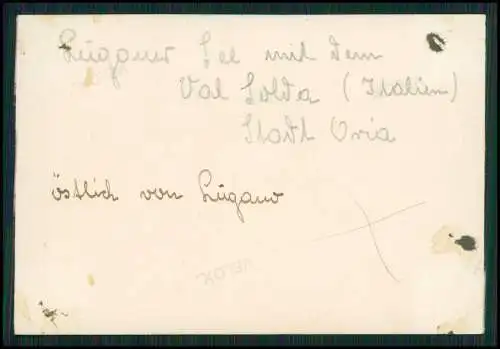 Luganer See mit dem
Val Solda (Italien)
Stadt Oria
östlich von Lugano
VELOX